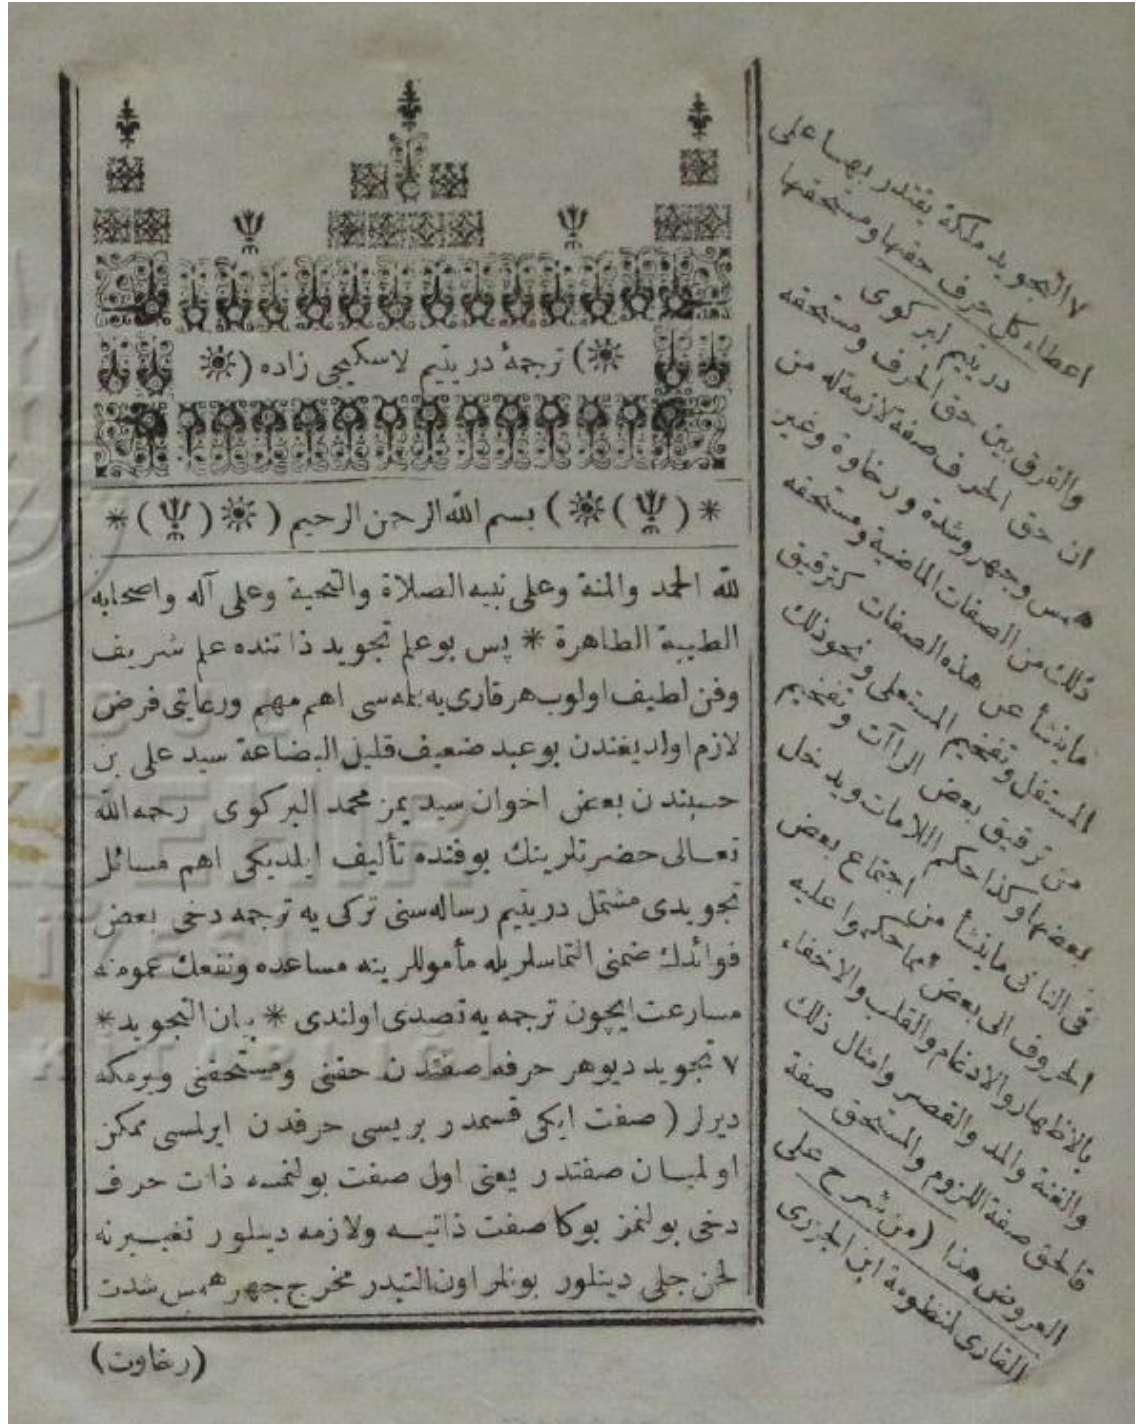 ترجمهٔ در یتیم لاسکیجی زاده
بسم الله الرحمن الرحیم
لله الحمد والمنة وعلى نبيه الصلاة والتحية وعلى آله واصحابه
الطيبة الطاهرة * پس بو علم تجوید ذاتنده علم شریف
وفن لطیف اولوب هر قاری یه بلمه سی اهم مهم ورعایتی فرض
لازم اولدیغندن بو عبد ضعیف قلیل البضاعة سید علی بن
حسیندن بعض اخوان سیدیمز محمد البرکوی رحمه الله
تعالی حضرتلرینك بوفنده تألیف ایلدیکی اهم مسائل
تجویدی مشتمل در یتیم رساله سنی ترکی یه ترجمه دخی بعض
فوائدك ضمنی التماسلریله مأموللرینه مساعده ونفعك عمومنه
مسارعت ایچون ترجمه یه تصدی اولندی * بیان التجوید *
٧ تجوید دیو هر حرفه صفتندن حقنی ومستحقنی ویرمکه
دیرلر ( صفت ایکی قسمدر بریسی حرفدن ایرلمسی ممکن
اولمیان صفتدر یعنی اول صفت بولنمسه ذات حرف
دخی بولنمز بوکا صفت ذاتیه ولازمه دینلور تغییرینه
لحن جلی دینلور بونلر اون التیدر مخرج جهر همس شدت
(رخاوت)
٧ التجويد ملكة يقتدر بها على
اعطاء كل حرف حقها ومستحقها
در یتیم لبركوى
والفرق بين حق الحرف ومستحقه
ان حق الحرف صفة لازمة له من
همس وجهر وشدة ورخاوة وغير
ذلك من الصفات الماضية ومستحقه
ما ينشأ عن هذه الصفات كترقيق
المستفل وتفخيم المستعلى ونحو ذلك
من ترقيق بعض الراآت وتفخيم
بعضها وكذا حكم اللامات ويدخل
فى الثانى ما ينشأ من اجتماع بعض
الحروف الى بعض مما حكموا عليه
بالاظهار والادغام والقلب والاخفاء
والغنة والمد والقصر وامثال ذلك
فالحق صفة اللزوم والمستحق صفة
العروض هذا (من شرح على
القارى لمنظومة ابن الجزرى